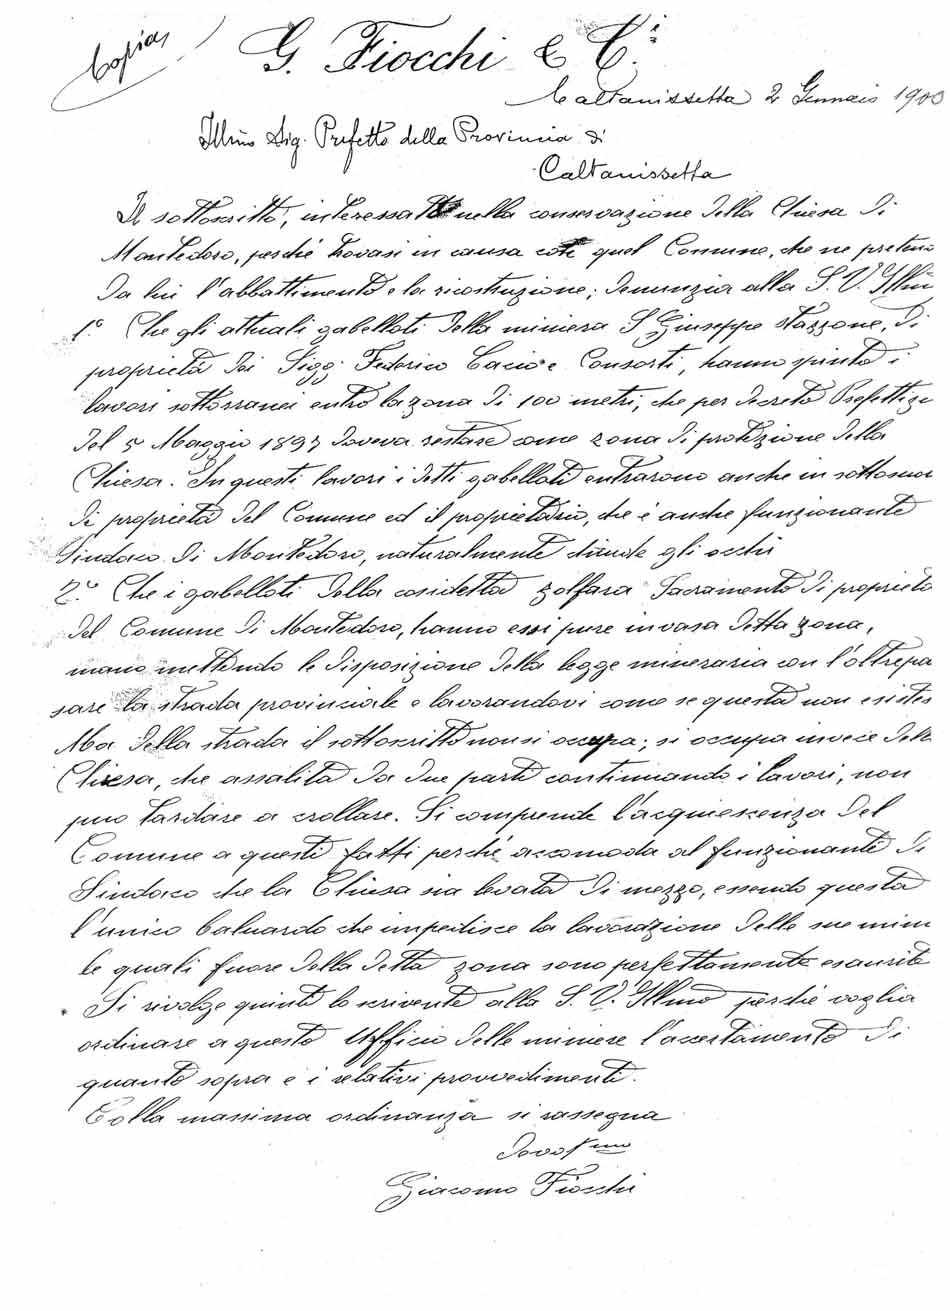 Copia
G. Fiocchi & C.i
Caltanissetta 2 Gennaio 1900
Illmo Sig. Prefetto della Provincia di
Caltanissetta
Il sottoscritto, interessato nella conservazione della Chiesa di
Montedoro, perché trovasi in causa con quel Comune, che ne preten
da lui l'abbattimento e la ricostruzione; denunzia alla S. V. Illm
1° Che gli attuali gabelloti della miniera S Giuseppe Stazzone, di
proprietà dei Sigg: Federico Caico e Consorti, hanno spinto i
lavori sotterranei entro la zona di 100 metri, che per decreto Prefettiz
del 5 Maggio 1897 doveva restare come zona di protezione della
Chiesa. In questi lavori i detti gabelloti entrarono anche in sottosuo
di proprietà del Comune ed il proprietario, che è anche funzionante
Sindaco di Montedoro, naturalmente chiude gli occhi
2.° Che i gabelloti della cosidetta zolfara Sacramento di proprietà
del Comune di Montedoro, hanno essi pure invasa detta zona,
mano mettendo le disposizione della legge mineraria con l'oltrepa
sare la strada provinciale e lavorandovi come se questa non esistes
Ma della strada il sottoscritto non si occupa; si occupa invece della
Chiesa, che assalita da due parti continuando i lavori, non
puo tardare a crollare. Si comprende l'acquiescenza del
Comune a questi fatti perché accomoda al funzionante di
Sindaco che la Chiesa sia levata di mezzo, essendo questa
l'unico baluardo che impedisce la lavorazione delle sue mini
le quali fuore della detta zona sono perfettamente esaurite
Si rivolge quinti lo scrivente alla S. V. Illma perché voglia
ordinare a questo Ufficio delle miniere l'accertamento di
quanto sopra e i relativi provvedimenti.
Colla massima ordinanza si rassegna
Devotmo
Giacomo Fiocchi